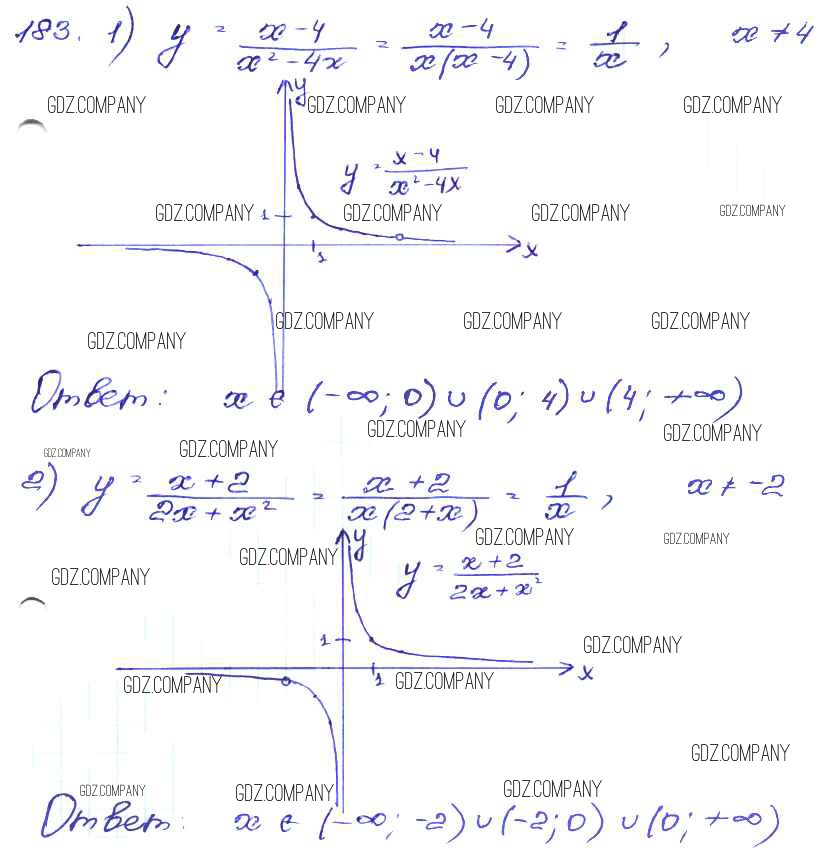 183. 1) y = (x-4)/(x²-4x) = (x-4)/(x(x-4)) = 1/x, x ≠ 4
GDZ.COMPANY GDZ.COMPANY GDZ.COMPANY GDZ.COMPANY
y
y = (x-4)/(x²-4x)
GDZ.COMPANY 1 GDZ.COMPANY GDZ.COMPANY GDZ.COMPANY
1 x
GDZ.COMPANY GDZ.COMPANY GDZ.COMPANY
GDZ.COMPANY
Ответ: x ∈ (-∞; 0) ∪ (0; 4) ∪ (4; +∞)
GDZ.COMPANY GDZ.COMPANY
GDZ.COMPANY GDZ.COMPANY
2) y = (x+2)/(2x+x²) = (x+2)/(x(2+x)) = 1/x, x ≠ -2
GDZ.COMPANY GDZ.COMPANY
y
GDZ.COMPANY GDZ.COMPANY y = (x+2)/(2x+x²)
1 GDZ.COMPANY
GDZ.COMPANY 1 GDZ.COMPANY x
GDZ.COMPANY
GDZ.COMPANY GDZ.COMPANY GDZ.COMPANY
Ответ: x ∈ (-∞; -2) ∪ (-2; 0) ∪ (0; +∞)